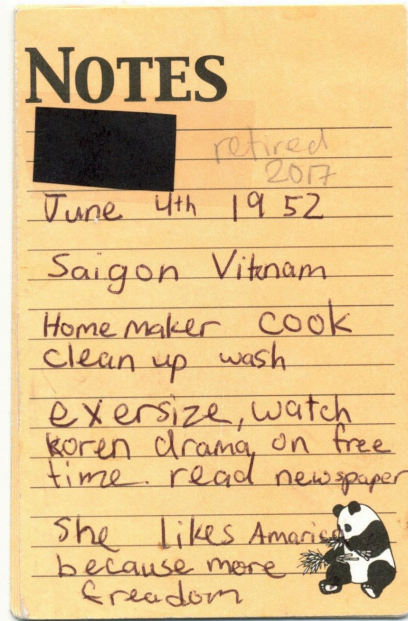 NOTES
retired
2017
June 4th 1952
Saigon Vitenam
Homemaker cook
clean up wash
exersize, watch
koren drama, on free
time. read newspaper
She likes Amarica
because more
freadom